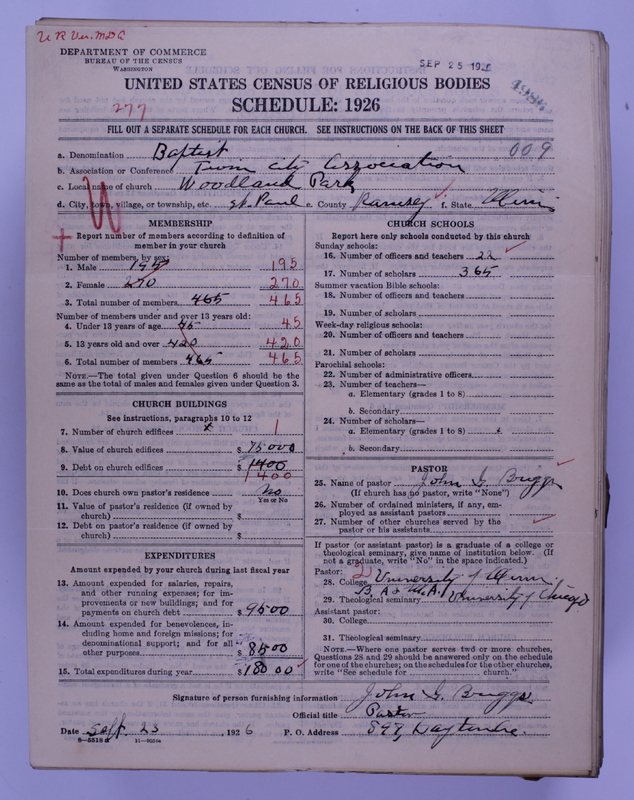 U R Ver. M.D.C.
DEPARTMENT OF COMMERCE
BUREAU OF THE CENSUS
WASHINGTON
SEP 25 1926
UNITED STATES CENSUS OF RELIGIOUS BODIES
277
SCHEDULE: 1926
FILL OUT A SEPARATE SCHEDULE FOR EACH CHURCH. SEE INSTRUCTIONS ON THE BACK OF THIS SHEET
a. Denomination Baptist 009
b. Association or Conference Twin City Association
c. Local name of church Woodland Park
d. City, town, village, or township, etc. St. Paul e. County Ramsey f. State Minn
MEMBERSHIP
Report number of members according to definition of
member in your church
Number of members, by sex:
1. Male 195 195
2. Female 270 270
3. Total number of members 465 465
Number of members under and over 13 years old:
4. Under 13 years of age 45 45
5. 13 years old and over 420 420
6. Total number of members 465 465
NOTE.—The total given under Question 6 should be the
same as the total of males and females given under Question 3.
CHURCH BUILDINGS
See instructions, paragraphs 10 to 12
7. Number of church edifices 1
8. Value of church edifices $ 75000
9. Debt on church edifices $ 1400
1400
10. Does church own pastor's residence No
Yes or No
11. Value of pastor's residence (if owned by
church) $
12. Debt on pastor's residence (if owned by
church) $
EXPENDITURES
Amount expended by your church during last fiscal year
13. Amount expended for salaries, repairs,
and other running expenses; for im-
provements or new buildings; and for
payments on church debt $ 9500
14. Amount expended for benevolences, in-
cluding home and foreign missions; for
denominational support; and for all
other purposes $ 8500
15. Total expenditures during year $ 18000
CHURCH SCHOOLS
Report here only schools conducted by this church
Sunday schools:
16. Number of officers and teachers 22
17. Number of scholars 365
Summer vacation Bible schools:
18. Number of officers and teachers
19. Number of scholars
Week-day religious schools:
20. Number of officers and teachers
21. Number of scholars
Parochial schools:
22. Number of administrative officers
23. Number of teachers—
a. Elementary (grades 1 to 8)
b. Secondary
24. Number of scholars—
a. Elementary (grades 1 to 8)
b. Secondary
PASTOR
25. Name of pastor John G. Briggs
(If church has no pastor, write "None")
26. Number of ordained ministers, if any, em-
ployed as assistant pastors
27. Number of other churches served by the
pastor or his assistants
If pastor (or assistant pastor) is a graduate of a college or
theological seminary, give name of institution below. (If
not a graduate, write "No" in the space indicated.)
Pastor:
28. College University of Minn.
B.A & M.A.
29. Theological seminary University of Chicago
Assistant pastor:
30. College
31. Theological seminary
NOTE.—Where one pastor serves two or more churches,
Questions 28 and 29 should be answered only on the schedule
for one of the churches; on the schedules for the other churches,
write "See schedule for church."
Signature of person furnishing information John G. Briggs
Official title Pastor
Date Sept. 23, 1926 P. O. Address 897, Dayton Ave.
8-5518 a 11-9001a